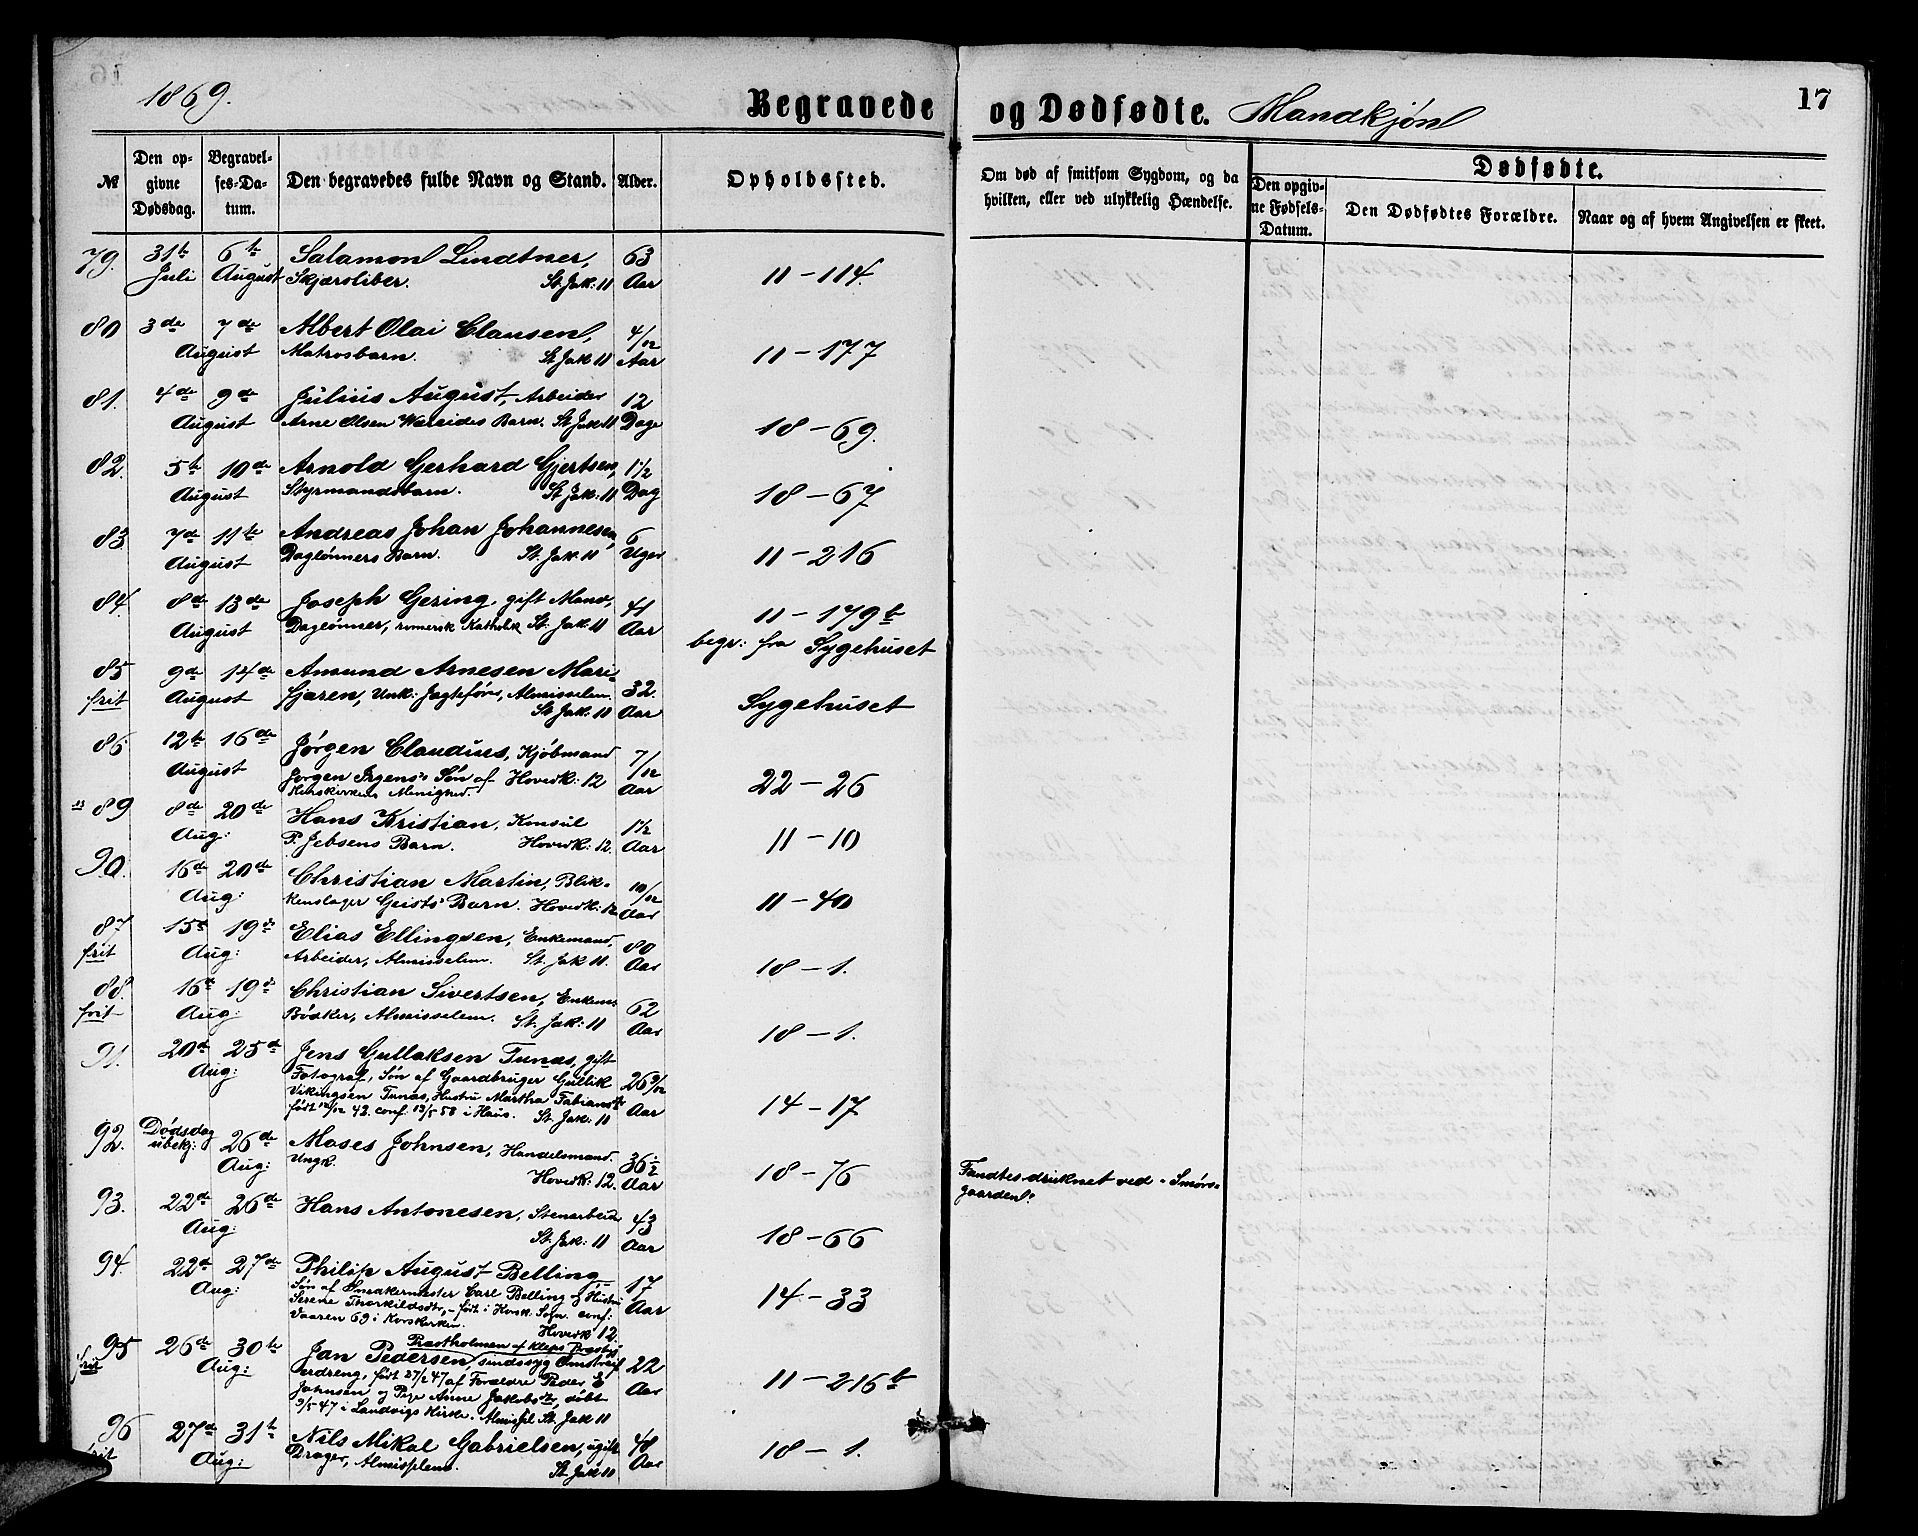 1869.
Begravede og Dødfødte. Mandkjøn
17
№
Den opgivne Dødsdag.
Begravelses-Datum.
Den begravedes fulde Navn og Stand.
Alder.
Opholdssted.
Om død af smitsom Sygdom, og da hvilken, eller ved ulykkelig Hændelse.
Dødfødte.
Den opgivne Fødsels-Datum.
Den Dødfødtes Forældre.
Naar og af hvem Angivelsen er skeet.
79. 31te 6te Salamon Lindtner, 63
Juli August Skjærsliber. St. Jak: 11 Aar 11 – 114.
80 3de 7de Albert Olai Clausen, 4/12
August Matrosbarn. St. Jak 11 Aar 11 – 177
81. 4de 9de Julius August, Arbeider 12
August Arne Olsen Wareides Barn. St. Jak 11 Dage 18 – 69.
82. 5te 10de Arnold Gerhard Gjertsen, 1 1/2
August Styrmandsbarn. St. Jak: 11 Dag 18 – 67
83 7de 11te Andreas Johan Johannesen, 6
August Daglønners Barn. St. Jak. 11 Uger 11 – 216
84. 8de 13de Joseph Gering, gift Mand, 41 11 – 179b
August Daglønner, romersk Katholik St. Jak 11 Aar begr: fra Sygehuset
85 9de 14de Amund Arnesen Mari-
frit August fjæren, Unk: Jagtefører, Almisselem. 32. Sygehuset
St. Jak. 11 Aar
86 12te 16de Jørgen Claudius, Kjøbmand 7/12
August Jørgen Irgens's Søn af Hovedk: 12 Aar 22 – 26
Korskirkens Menighed.
89 8de 20de Hans Kristian, Konsul 1 1/2
Aug: P. Jebsens Barn. Hovedk: 12. Aar 11 – 10
90. 16de 20de Christian Martin, Blik- 10/12
Aug: kenslager Geists' Barn. Hovedk: 12 Aar 11 – 40
87 15de 19de Elias Ellingsen, Enkemand, 80
frit Aug: Arbeider, Almisselem. St. Jak 11. Aar 18 – 1.
88. 16de 19de Christian Sivertsen, Enkem: 62
frit Aug: Bødker, Almisselem. St. Jak: 11 Aar 18 – 1.
91. 20de 25de Jens Gullaksen Tunæs, gift
Aug: Fotograf, Søn af Gaardbruger Gullik 26 9/12
Vikingsen Tunæs, Hustru Martha Fabiansdr Aar 14 – 17
født 12/12 42. conf. 13/5 58 i Haus. St. Jak: 11
92. Dødsdag ubekj: 26de Moses Johnsen, Handelsmand. 36 1/2
Aug: Ungk. Hovedk: 12. Aar 18 – 76 Fandtes druknet ved "Smørs-
gaarden".
93. 22de 26de Hans Antonesen, Stenarbeider 43
Aug: St. Jak: 11 Aar 18 – 66
94. 22de 27de Philip August Belling 17
Aug: Søn af Snedkermester Carl Belling og Hustru Aar 14 – 33
Serene Thorkildsdtr, – født i Korsk: Sogn. conf:
Vaaren 69 i Korskirken. Hovedk 12.
95 26de 30te Præstholmen af Kleps Præstegj
frit Aug: Jan Pedersen, sindssyg Omstreif- 22
erdreng, født 27/2 47 af Forældre Peder E Aar 11 – 216b
Johnsen og Pige Anne Jakobsdr, døbt
9/5 47 i Landvigs Kirke. St. Jak 11
96 27de 31te Nils Mikal Gabrielsen, ugift 48
frit Aug: Drager, Almisselem. St. Jak 11 Aar 18 – 1.